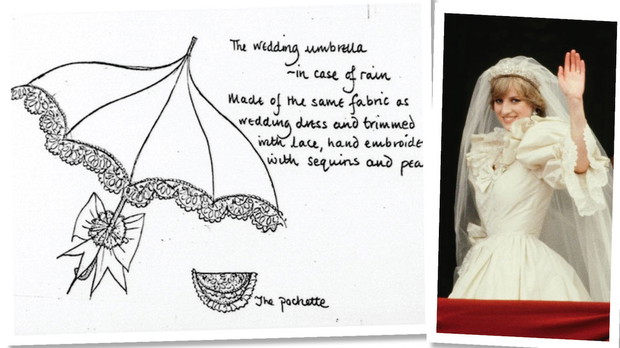 The wedding umbrella
~in case of rain
Made of the same fabric as
wedding dress and trimmed
with lace, hand embroide
with sequins and pea
The pochette